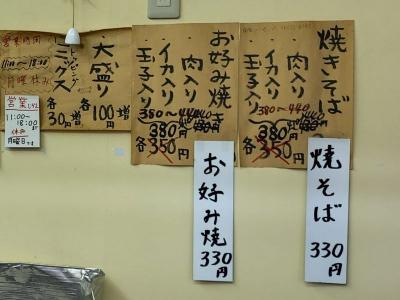 焼きそば
肉入り
イカ入り
玉子入り
380〜440
380円
各350円
お好み焼き
肉入り
イカ入り
玉子入り
380〜440
380円
各350円
大盛り
各100円増
トッピング
ミックス
各30円増
営業時間
11:00〜18:00
月曜休み
営業
11:00〜
18:00まで
休み
月曜日です
焼そば
330円
お好み焼
330円